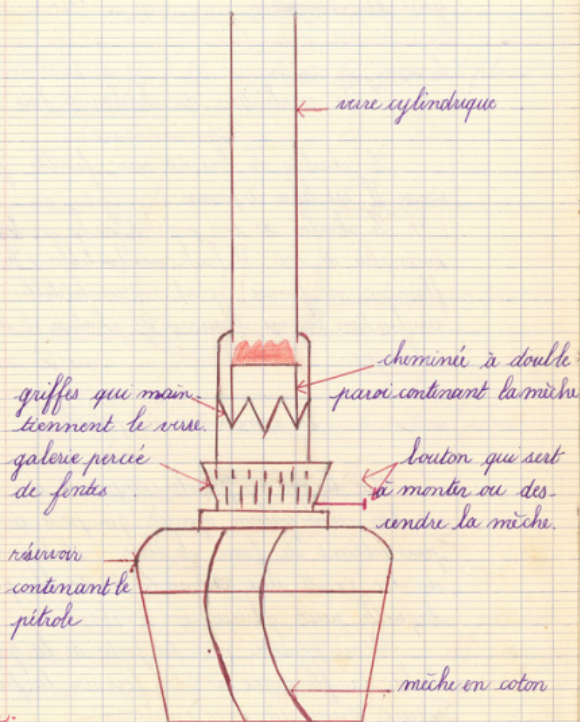 verre cylindrique
cheminée à double
paroi contenant la mèche
griffes qui main-
tiennent le verre.
galerie percée
de fentes
bouton qui sert
à monter ou des-
cendre la mèche.
réservoir
contenant le
pétrole
mèche en coton